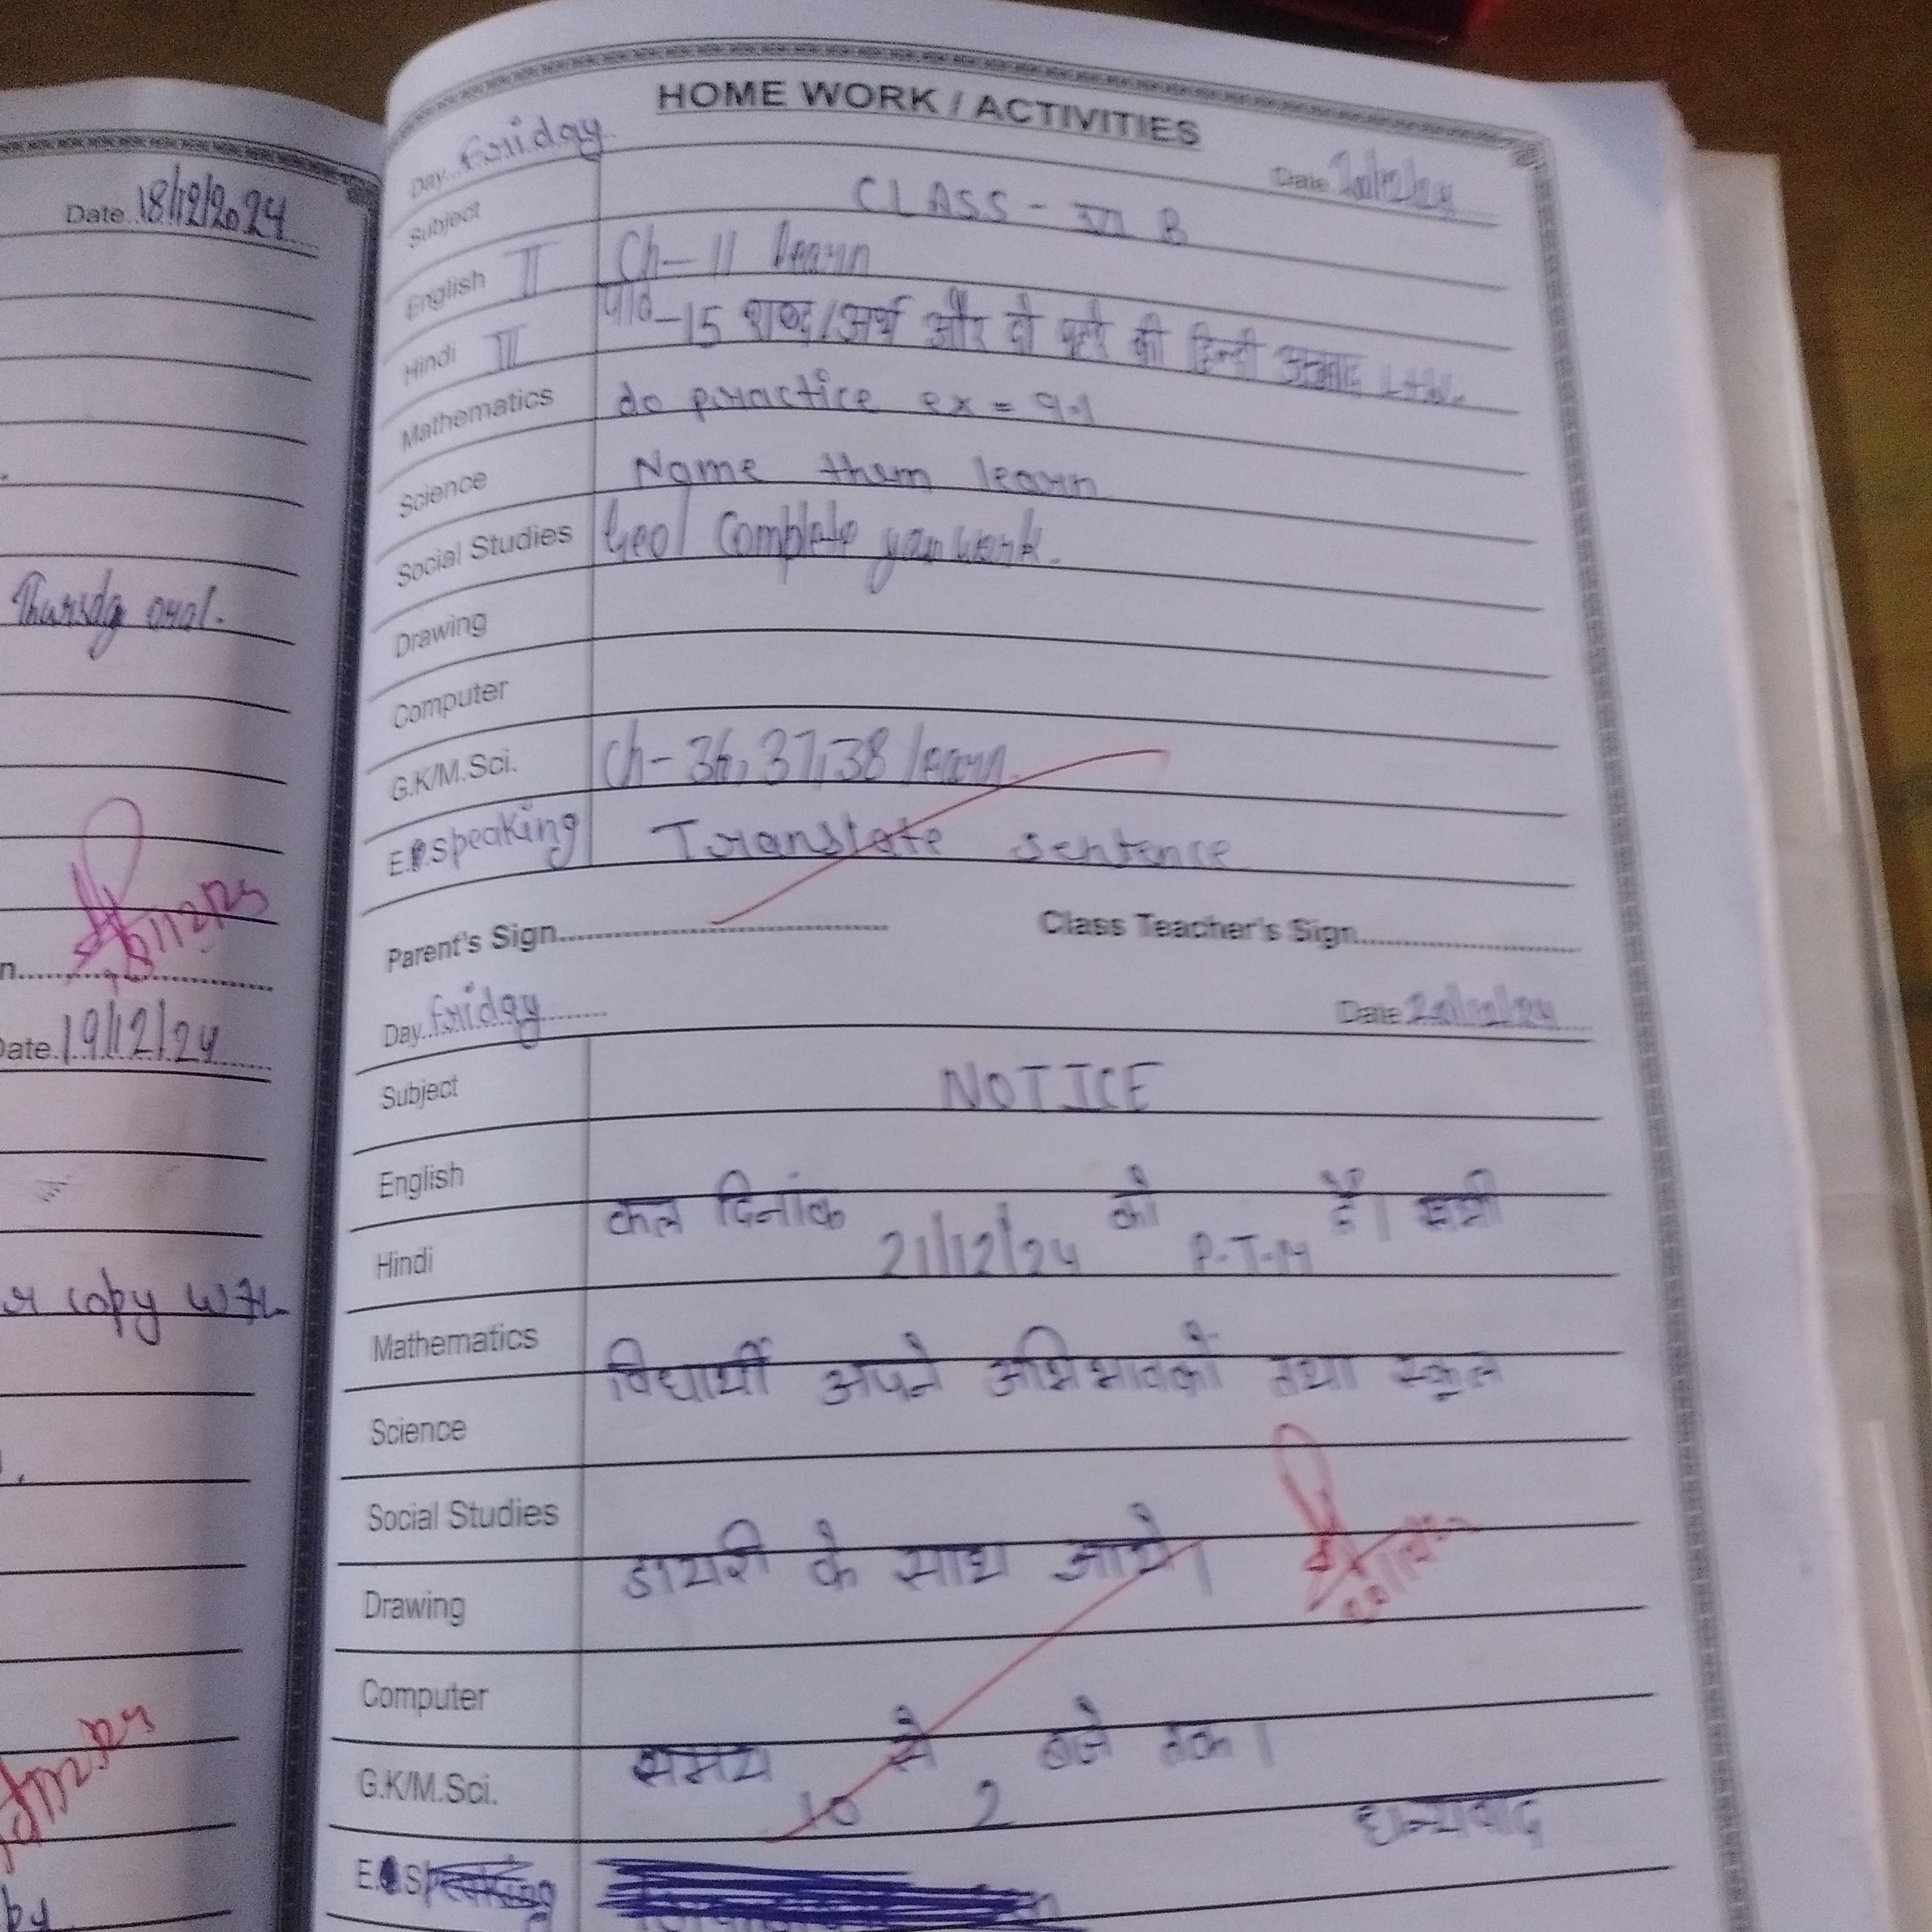 Date 18/12/2024
Thursdg oral.
Date 19/12/24
copy
HOME WORK / ACTIVITIES
Day Friday Date 20/12/24
Subject CLASS - VI B
English II Ch-11 learn
Hindi III पाठ-15 शब्द/अर्थ और दो की हिन्दी अनुवाद L+W.
Mathematics do practice ex = 9.1
Science Name them learn
Social Studies Geo/ Complete your work.
Drawing
Computer
G.K/M.Sci. Ch-36,37,38 learn
E. Speaking Translate sentence
Parent's Sign Class Teacher's Sign
Day Friday Date 20/12/24
Subject NOTICE
English
कल दिनांक 21/12/24 को P.T.M है। सभी
Hindi
Mathematics
विद्यार्थी अपने अभिभावकों तथा स्कूल
Science
Social Studies
डायरी के साथ आये।
Drawing
Computer
समय 10 से 2 बजे तक।
G.K/M.Sci.
धन्यवाद